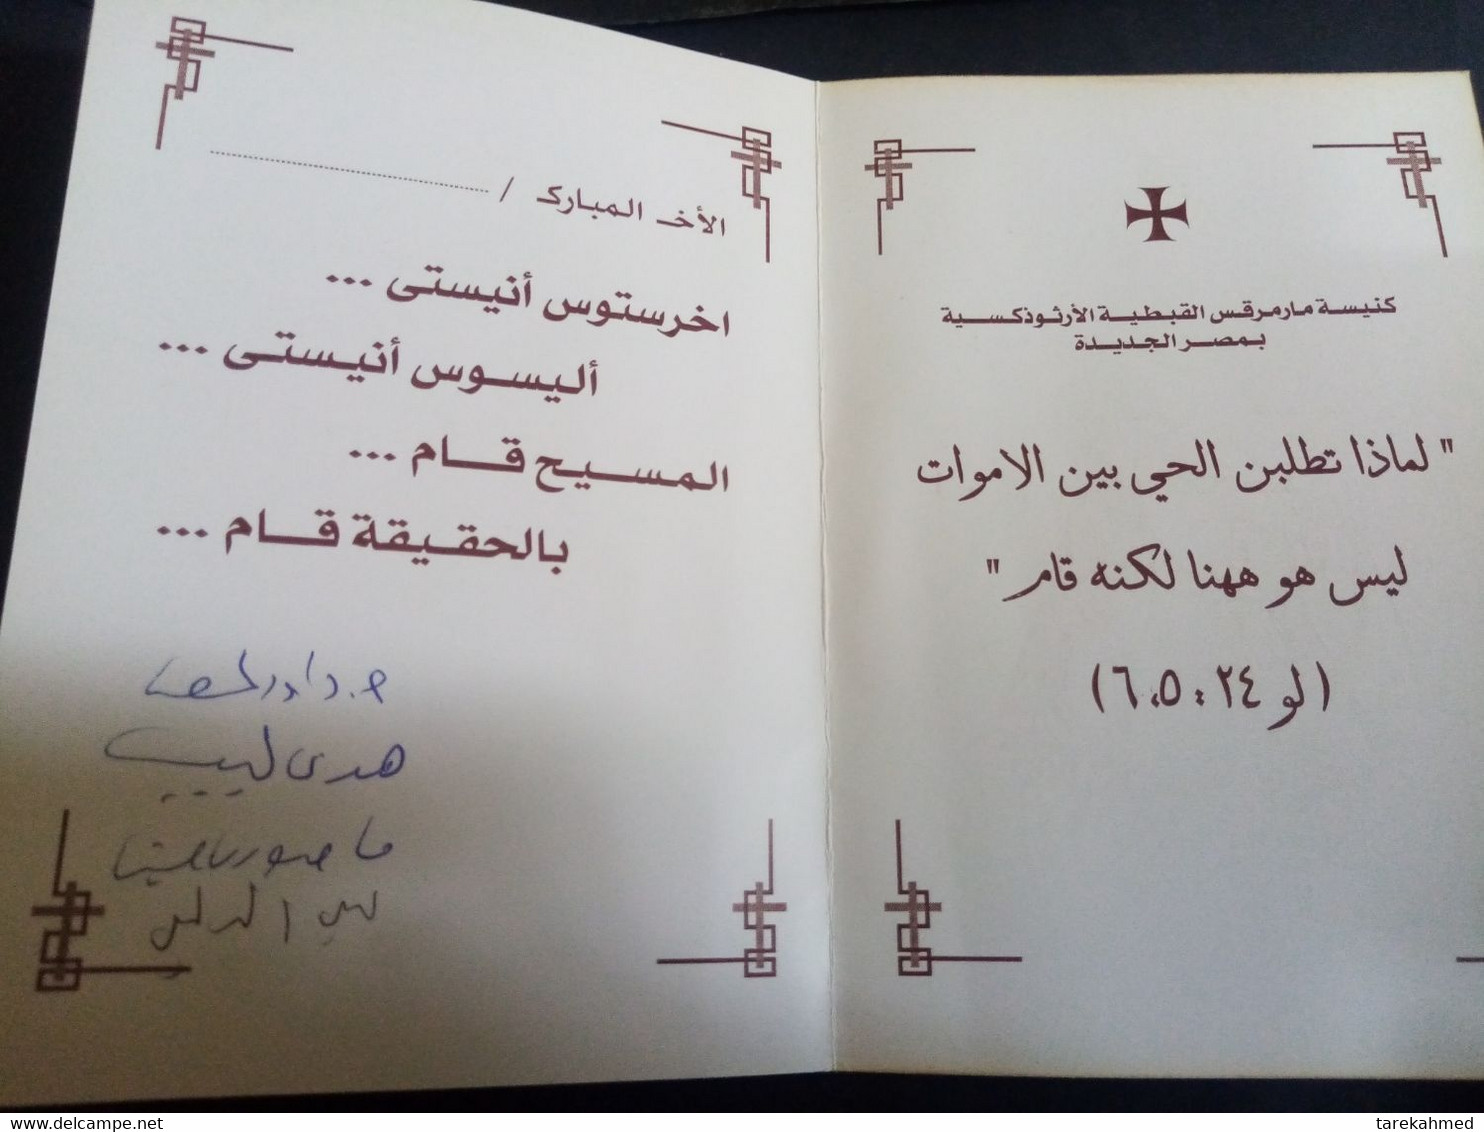 كنيسة مارمرقس القبطية الأرثوذكسية
بمصر الجديدة
" لماذا تطلبن الحي بين الاموات
ليس هو ههنا لكنه قام "
(لو ٢٤ : ٥، ٦)
الأخ المبارك /
اخرستوس أنيستى ...
أليسوس أنيستى ...
المسيح قام ...
بالحقيقة قام ...
هدى لبيب
delcampe.net
tarekahmed